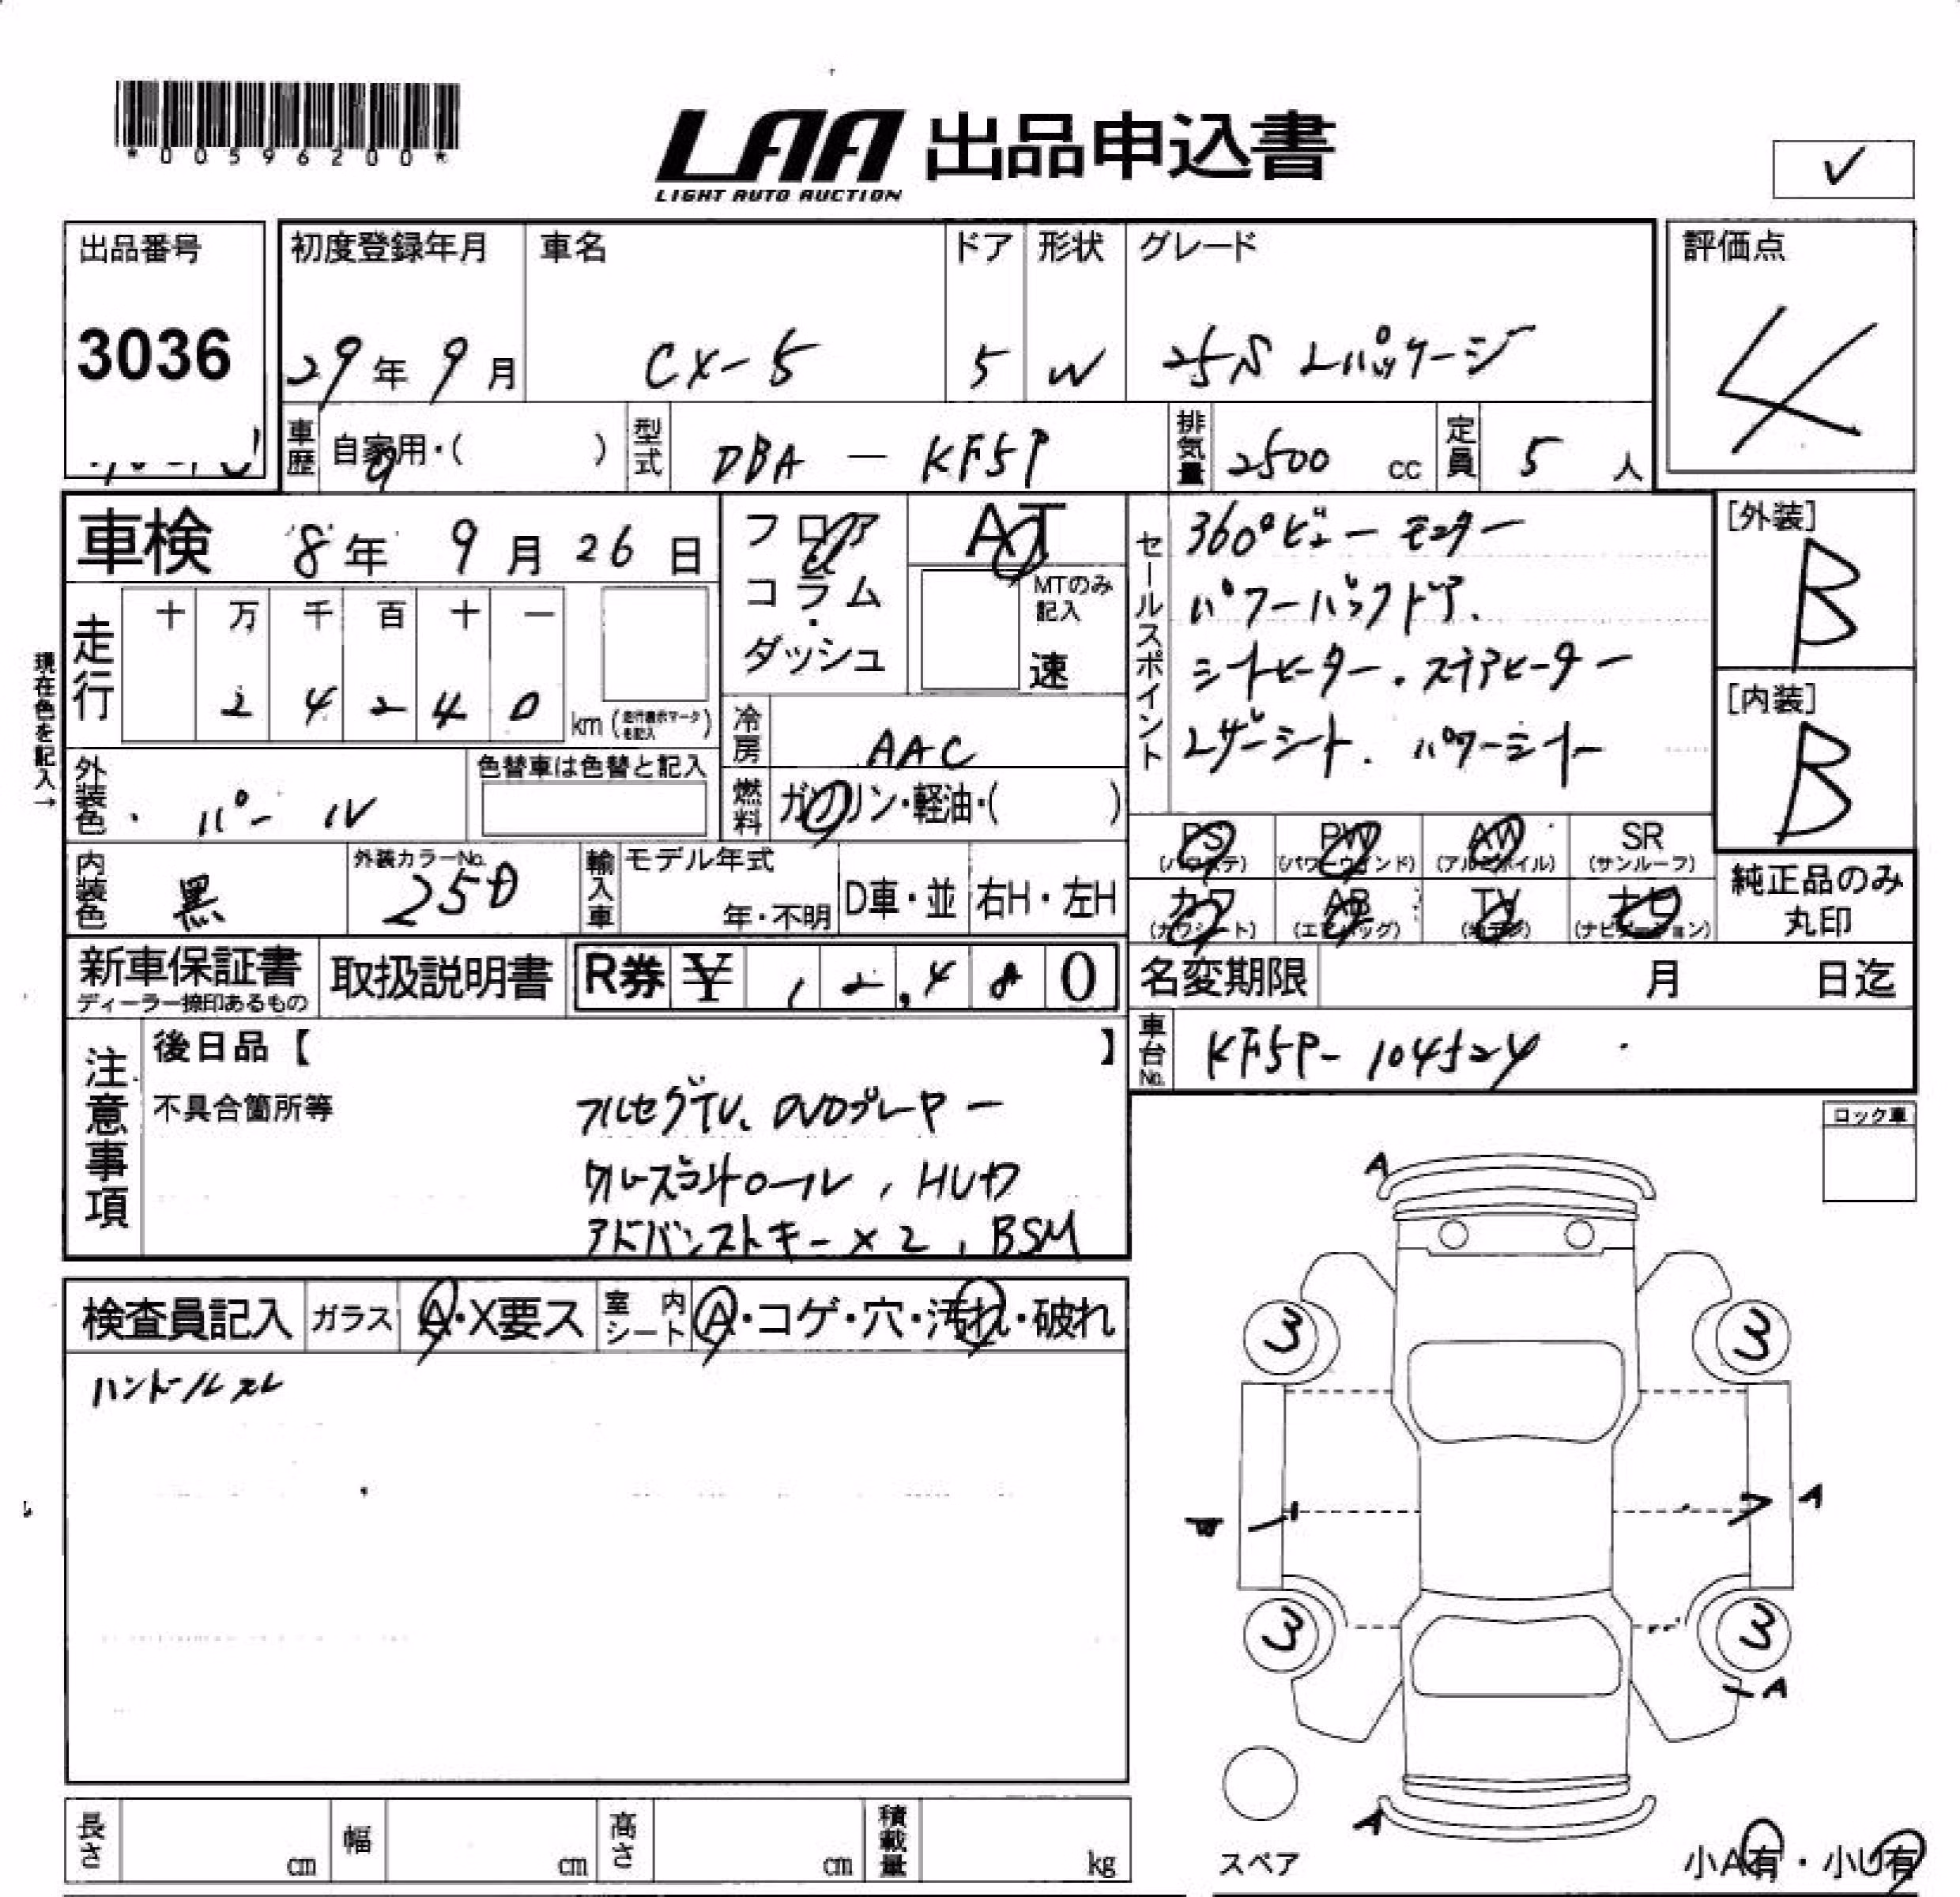 *00596200*
LAA 出品申込書
LIGHT AUTO AUCTION
✓
出品番号
3036
初度登録年月
29年 9月
車名
CX-5
ドア
5
形状
W
グレード
25S Lパッケージ
評価点
4
車歴 自家用・( )
型式 DBA - KF5P
排気量 2500 cc
定員 5 人
車検 8年 9月 26日
フロア・コラム・ダッシュ
AT
MTのみ記入
速
セールスポイント
360°ビューモニター
パワーバックドア.
シートヒーター.ステアヒーター
レザーシート. パワーシート
[外装]
B
[内装]
B
現在色を記入→
走行
十 万 千 百 十 一
2 4 2 4 0
km (走行表示マークを記入)
冷房 AAC
燃料 ガソリン・軽油・( )
外装色 パール
色替車は色替と記入
内装色 黒
外装カラーNo. 25D
輸入車 モデル年式
年・不明
D車・並
右H・左H
PS (パワステ)
PW (パワーウインド)
AW (アルミホイル)
SR (サンルーフ)
カワ (カワシート)
AB (エアバッグ)
TV (地デジ)
ナビ (ナビゲーション)
純正品のみ丸印
新車保証書
ディーラー捺印あるもの
取扱説明書
R券 ¥ 12,480
名変期限 月 日迄
車台No. KF5P-104524
注意事項
後日品【 】
不具合箇所等
フルセグTV、DVDプレーヤー
クルーズコントロール, HUD
アドバンストキー×2, BSM
ロック車
検査員記入
ガラス A・X要ス
室内シート A・コゲ・穴・汚れ・破れ
ハンドルスレ
A
3
3
W
A
3
3
A
A
スペア
小A有・小U有
長さ cm
幅 cm
高さ cm
積載量 kg